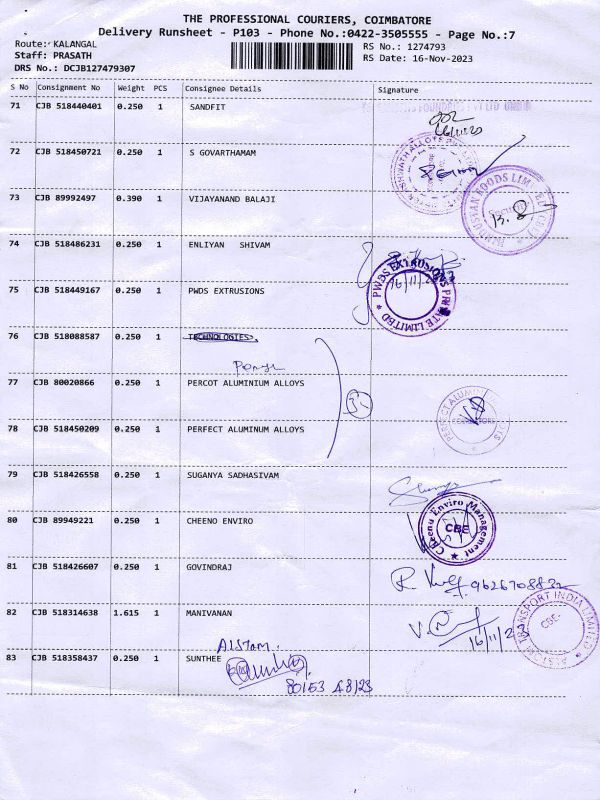 THE PROFESSIONAL COURIERS, COIMBATORE
Delivery Runsheet - P103 - Phone No.:0422-3505555 - Page No.:7
Route: KALANGAL
Staff: PRASATH
DRS No.: DCJB127479307
RS No.: 1274793
RS Date: 16-Nov-2023
S No Consignment No Weight PCS Consignee Details Signature
71 CJB 518440401 0.250 1 SANDFIT
72 CJB 518450721 0.250 1 S GOVARTHAMAM
73 CJB 89992497 0.390 1 VIJAYANAND BALAJI
74 CJB 518486231 0.250 1 ENLIYAN SHIVAM
16/11/2
75 CJB 518449167 0.250 1 PWDS EXTRUSIONS
PWDS EXTRUSIONS PRIVATE LIMITED
76 CJB 518088587 0.250 1 TECHNOLOGIES
77 CJB 80020866 0.250 1 PERCOT ALUMINIUM ALLOYS
78 CJB 518450209 0.250 1 PERFECT ALUMINUM ALLOYS
79 CJB 518426558 0.250 1 SUGANYA SADHASIVAM
80 CJB 89949221 0.250 1 CHEENO ENVIRO
Cheenu Enviro Management
CBE
81 CJB 518426607 0.250 1 GOVINDRAJ
82 CJB 518314638 1.615 1 MANIVANAN
16/11/2
TRANSPORT INDIA LIMITED
CBE-
Alstom.
83 CJB 518358437 0.250 1 SUNTHEE